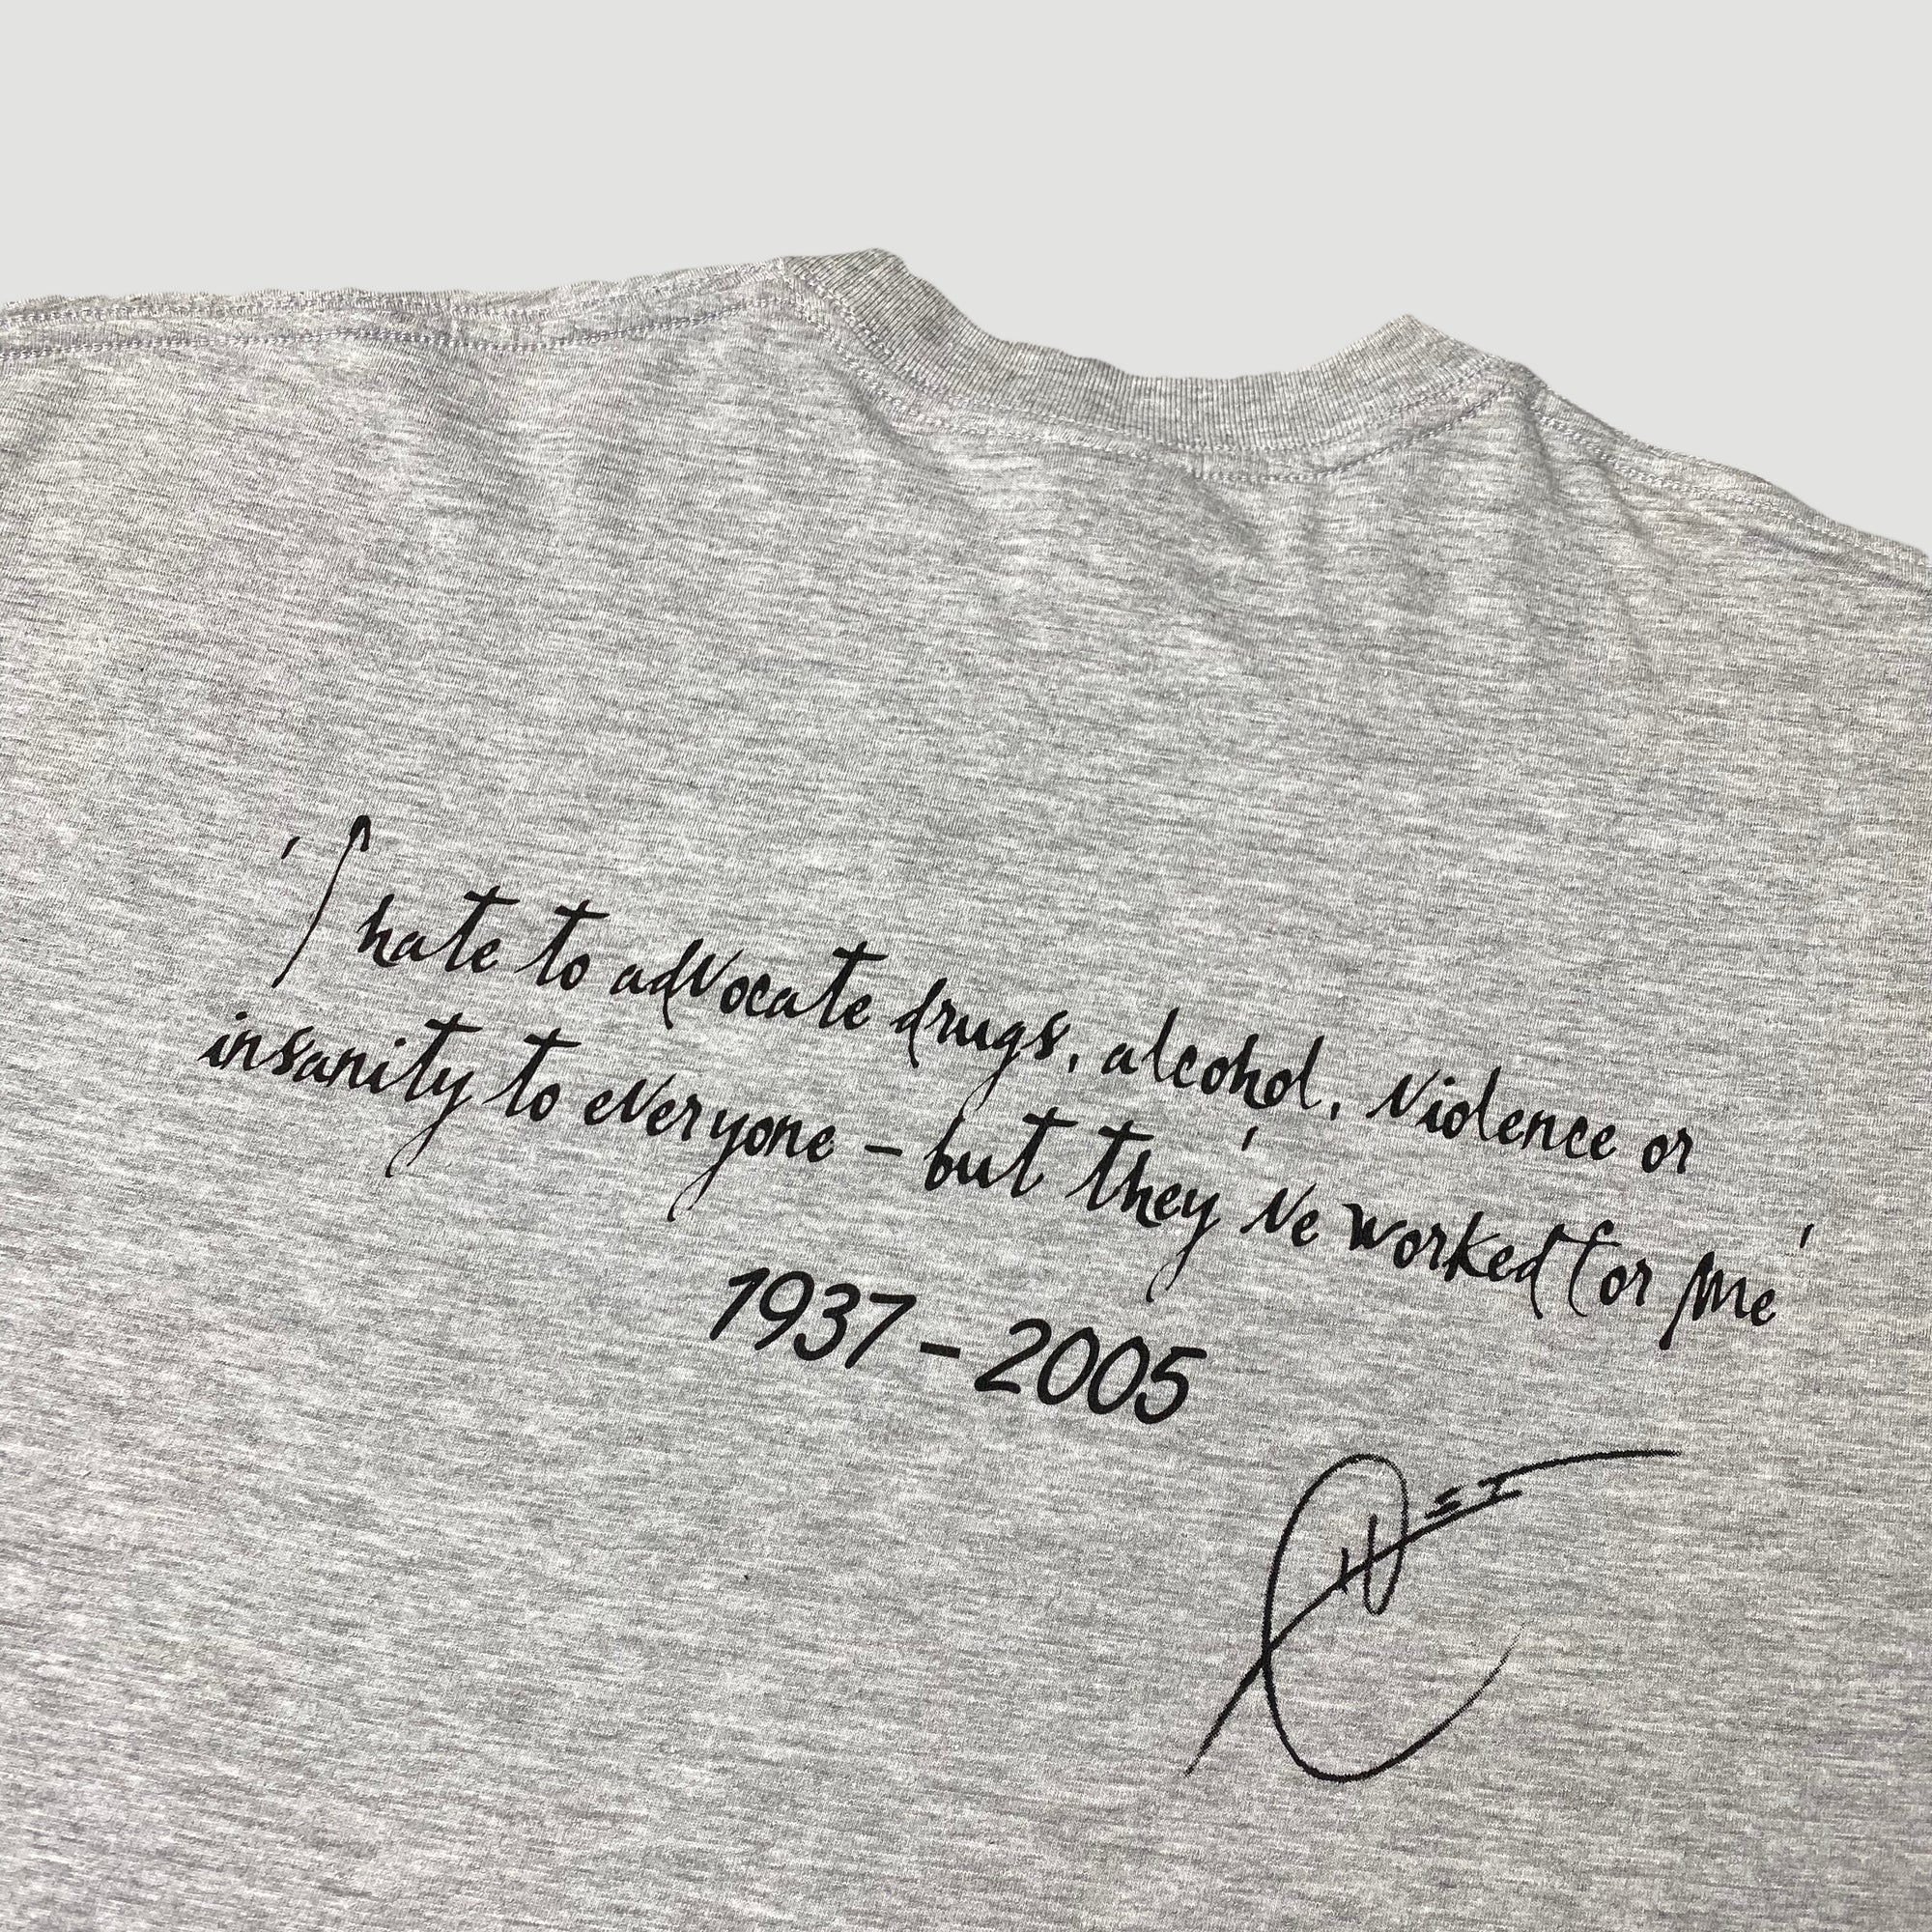 'I hate to advocate drugs, alcohol, violence or
insanity to everyone – but they've worked for me'
1937 – 2005